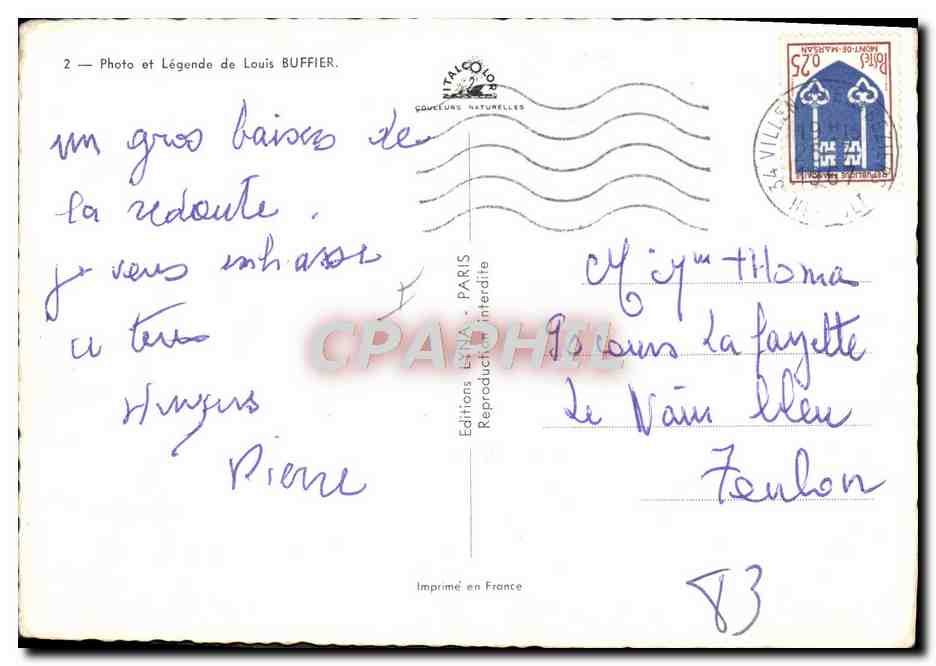 2 — Photo et Légende de Louis BUFFIER.
VITALCOLOR
COULEURS NATURELLES
POSTES
0,25
MONT-DE-MARSAN
REPUBLIQUE FRANÇAISE
34 VILLEN
un gros baisers de
la redoute.
je vous embrasse
a tous
Pierre
Editions LYNA - PARIS
Reproduction interdite
CPAPHIL
M Mme tHoma
90 cours La fayette
Le Nain bleu
Toulon
83
Imprimé en France